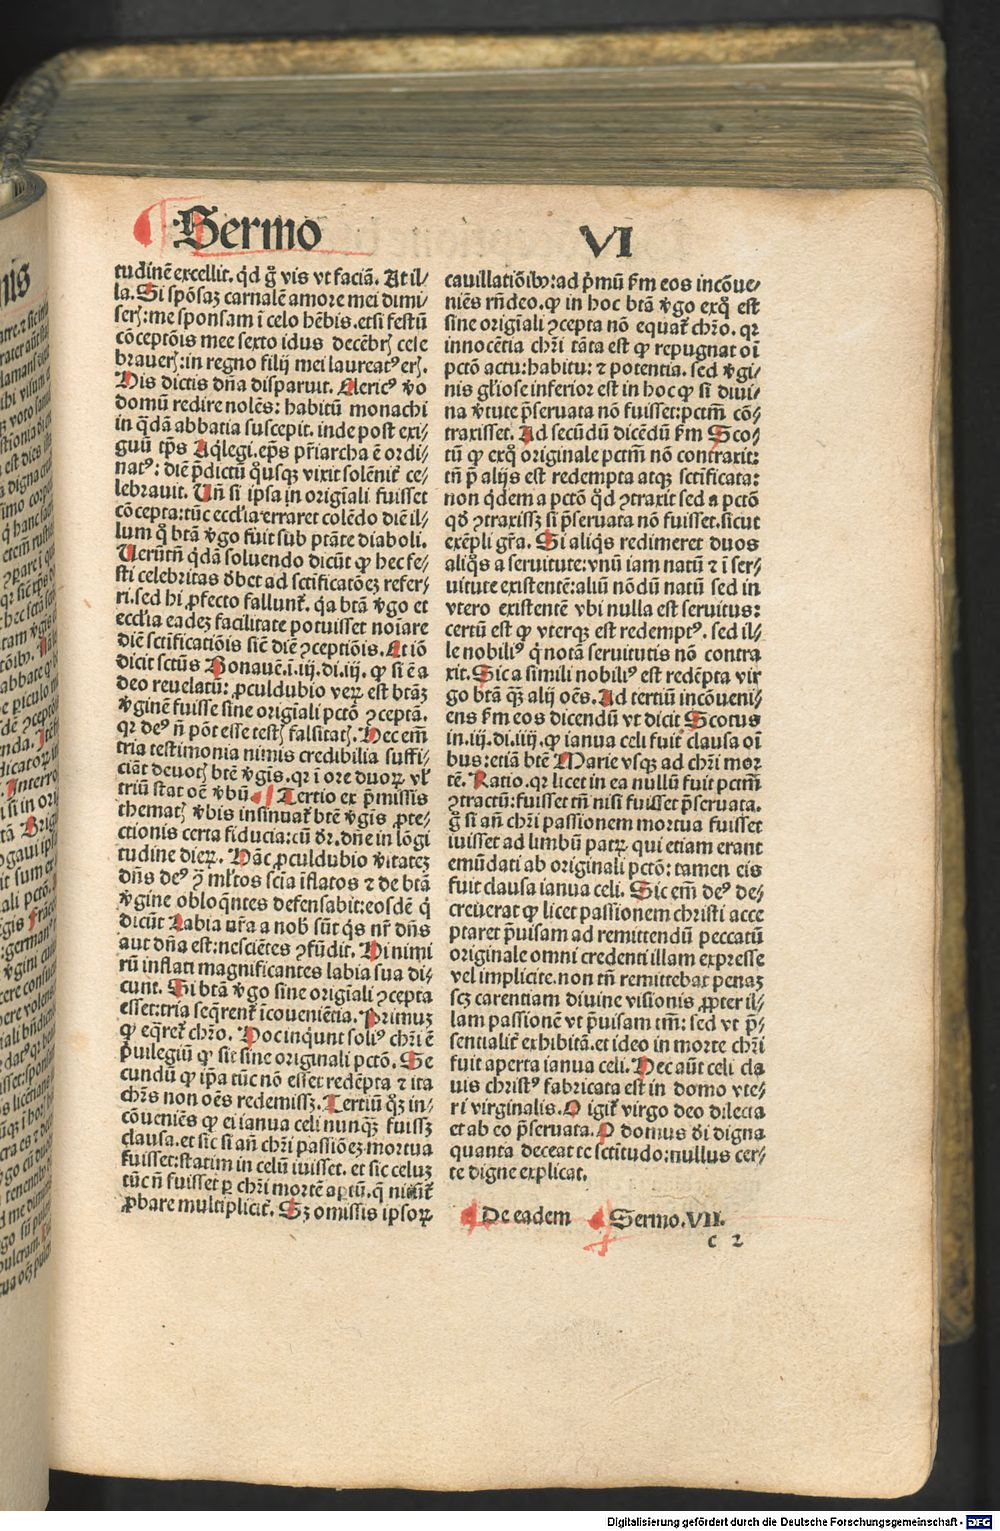 Sermo VI
tudinē excellit. qd g̃ vis vt faciā. At il⸗
la. Si spōsaȝ carnalē amore mei dimi⸗
serꝭ: me sponsam ī celo hēbis. et si festū
cōceptōis mee sexto idus decēbrꝭ cele
brauerꝭ: in regno filij mei laureatꝰ erꝭ.
His dictis dña disparuit. Clericꝰ v̄o
domū redire nolēs: habitū monachi
in qͥdā abbatia suscepit. inde post exi⸗
guū tp̄s Aqͥlegi. ep̄s pr̄iarcha ē ordi⸗
natꝰ: diē p̄dictū qͦusqꝫ vixit solēnit̄ ce⸗
lebrauit. Uñ si ipsa in origīali fuisset
cōcepta: tūc eccl̄ia erraret colēdo diē il⸗
lum qͦ btā v̄go fuit sub ptāte diaboli.
Uerūtñ qͥdā soluendo dicūt ꝙ hec fe⸗
sti celebritas dꝫbet ad sctificatōeȝ refer⸗
ri. sed hi ꝓfecto fallunt̄. qꝛ btā v̄go et
eccl̄ia eadeȝ facilitate potuisset noīare
diē sctificatiōis sic̄ diē ꝯceptiōis. Et iō
dicit sctūs Bonauē. i. iij. di. iij. ꝙ si ē a
deo reuelatū: ꝓculdubio verꝝ est btāȝ
v̄ginē fuisse sine origīali pctō ꝯceptā.
qꝛ deꝰ ñ pōt esse testꝭ falsitatꝭ. Hec em̄
tria testimonia nimis credibilia suffi⸗
ciāt deuotꝭ btē v̄gīs. qꝛ ī ore duorꝝ vl̄
triū stat oē v̄bū. Tertio ex p̄missis
thematꝭ v̄bis insinuat̄ btē v̄gīs ꝓte⸗
ctionis certa fiducia: cū dr̄. dñe in lōgi
tudine dierꝝ. Hāc ꝓculdubio v̄itateȝ
dñs deꝰ ꝯ̄ ml̄tos scīa īflatos ⁊ de btā
v̄gine obloqͥntes defensabit: eosdē qͥ
dicūt Labia nr̄a a nob̄ sūt qͥs nr̄ dñs
aut dña est: nesciētes ꝯfūdit. Hi nimi
rū inflati magnificantes labia sua di⸗
cunt. Si btā v̄go sine origīali ꝯcepta
esset: tria seqͥrent̄ īcoueniētia. Primuȝ
ꝙ eqͥret̄ chr̄o. Hoc inqͥunt soliꝰ chr̄i ē
p̄uilegiū ꝙ sit sine originali pctō. Se
cundū ꝙ ip̄a tūc nō esset redēpta ⁊ ita
chr̄s non oēs redemissꝫ. Tertiū qꝫ in⸗
cōueniēs ꝙ ei ianua celi nunqͣꝫ fuissꝫ
clausa. et sic si añ chr̄i passiōeȝ mortua
fuisset: statim in celū iuisset. et sic celuȝ
tūc ñ fuisset ꝑ chr̄i mortē aptū. qͥ nitūt̄
ꝓbare multiplicit̄. Sꝫ omissis ipsorꝝ
cauillatiōibꝰ: ad p̄mū s̄m eos incōue⸗
niēs rñdeo. ꝙ in hoc btā v̄go exqͦ est
sine origīali ꝯcepta nō equat̄ chr̄o. qꝛ
innocētia chr̄i tāta est ꝙ repugnat oī
pctō actu: habitu: ⁊ potentia. sed v̄gi⸗
nis gl̄iose inferior est in hoc ꝙ si diui⸗
na v̄tute p̄seruata nō fuisset: pctm̄ cō⸗
traxisset. Ad secūdū dicēdū s̄m Sco⸗
tū ꝙ exqͦ originale pctm̄ nō contraxit:
tñ p̄ alijs est redempta atqꝫ sctificata:
non qͥdem a pctō qd̄ ꝯtraxit sed a pctō
qd̄ ꝯtraxissꝫ si p̄seruata nō fuisset. sicut
exēpli gr̄a. Si aliqͥs redimeret duos
aliqͥs a seruitute: vnū iam natū ⁊ ī ser⸗
uitute existentē: aliū nōdū natū sed in
vtero existentē vbi nulla est seruitus:
certū est ꝙ vterqꝫ est redemptꝰ. sed il⸗
le nobiliꝰ qͥ notā seruitutis nō contra
xit. Sic a simili nobiliꝰ est redēpta vir
go btā qͣꝫ alij oēs. Ad tertiū incōueni⸗
ens s̄m eos dicendū vt dicit Scotus
in. iij. di. iiij. ꝙ ianua celi fuit clausa oī
bus: etiā btē Marie vsqꝫ ad chr̄i mor
tē. Ratio. qꝛ licet in ea nullū fuit pctm̄
ꝯtractū: fuisset tñ nisi fuisset p̄seruata.
g̃ si añ chr̄i passionem mortua fuisset
iuisset ad limbū patrꝝ qui etiam erant
emūdati ab originali pctō: tamen eis
fuit clausa ianua celi. Sic em̄ deꝰ de⸗
creuerat ꝙ licet passionem christi acce
ptaret p̄uisam ad remittendū peccatū
originale omni credenti illam expresse
vel implicite. non tñ remittebat penaȝ
scꝫ carentiam diuine visionis ꝓpter il⸗
lam passionē vt p̄uisam tm̄: sed vt p̄⸗
sentialit̄ exhibitā. et ideo in morte chr̄i
fuit aperta ianua celi. Hec aūt celi cla
uis christꝰ fabricata est in domo vte⸗
ri virginalis. O igit̄ virgo deo dilecta
et ab eo p̄seruata. O domus dei digna
quanta deceat te sctitudo: nullus cer⸗
te digne explicat.
De eadem Sermo. VII.
c 2
Digitalisierung gefördert durch die Deutsche Forschungsgemeinschaft - DFG